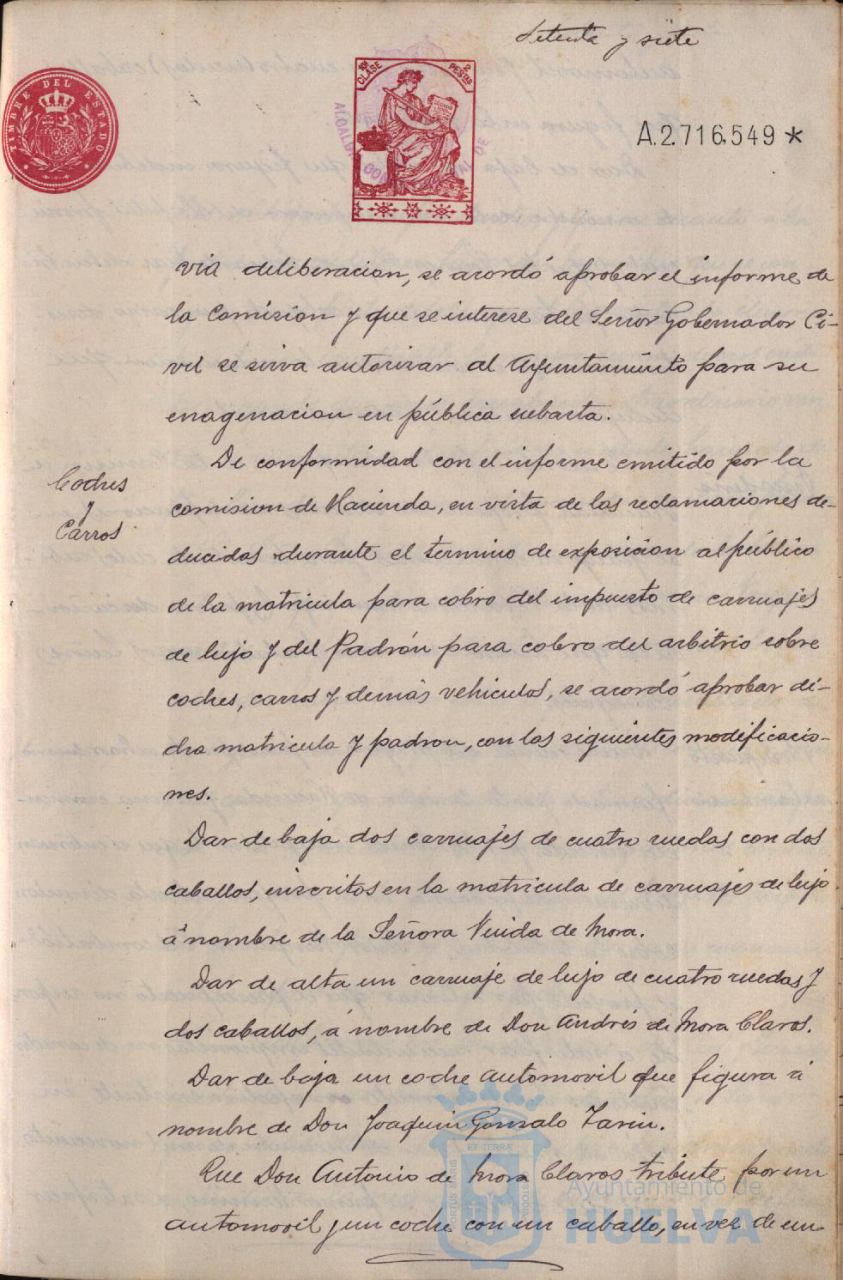 Setenta y siete
TIMBRE DEL ESTADO
10ª CLASE 2 PESETAS
ALCALDIA
A.2.716.549 *
via deliberacion, se acordó aprobar el informe de
la Comision y que se interese del Señor Gobernador Ci-
vil se sirva autorizar al Ayuntamiento para su
enagenacion en pública subasta.
Coches
y
Carros
De conformidad con el informe emitido por la
comision de Hacienda, en vista de las reclamaciones de-
ducidas durante el termino de exposicion al público
de la matricula para cobro del impuesto de carruajes
de lujo y del Padrón para cobro del arbitrio sobre
coches, carros y demás vehiculos, se acordó aprobar di-
cha matricula y padron, con las siguientes modificacio-
nes.
Dar de baja dos carruajes de cuatro ruedas con dos
caballos, inscritos en la matricula de carruajes de lujo
á nombre de la Señora Viuda de Mora.
Dar de alta un carruaje de lujo de cuatro ruedas y
dos caballos, á nombre de Don Andrés de Mora Claros.
Dar de baja un coche automovil que figura á
nombre de Don Joaquin Gonzalo Tarin.
Que Don Antonio de Mora Claros tribute por un
automovil y un coche con un caballo, en vez de un
Ayuntamiento de
HUELVA